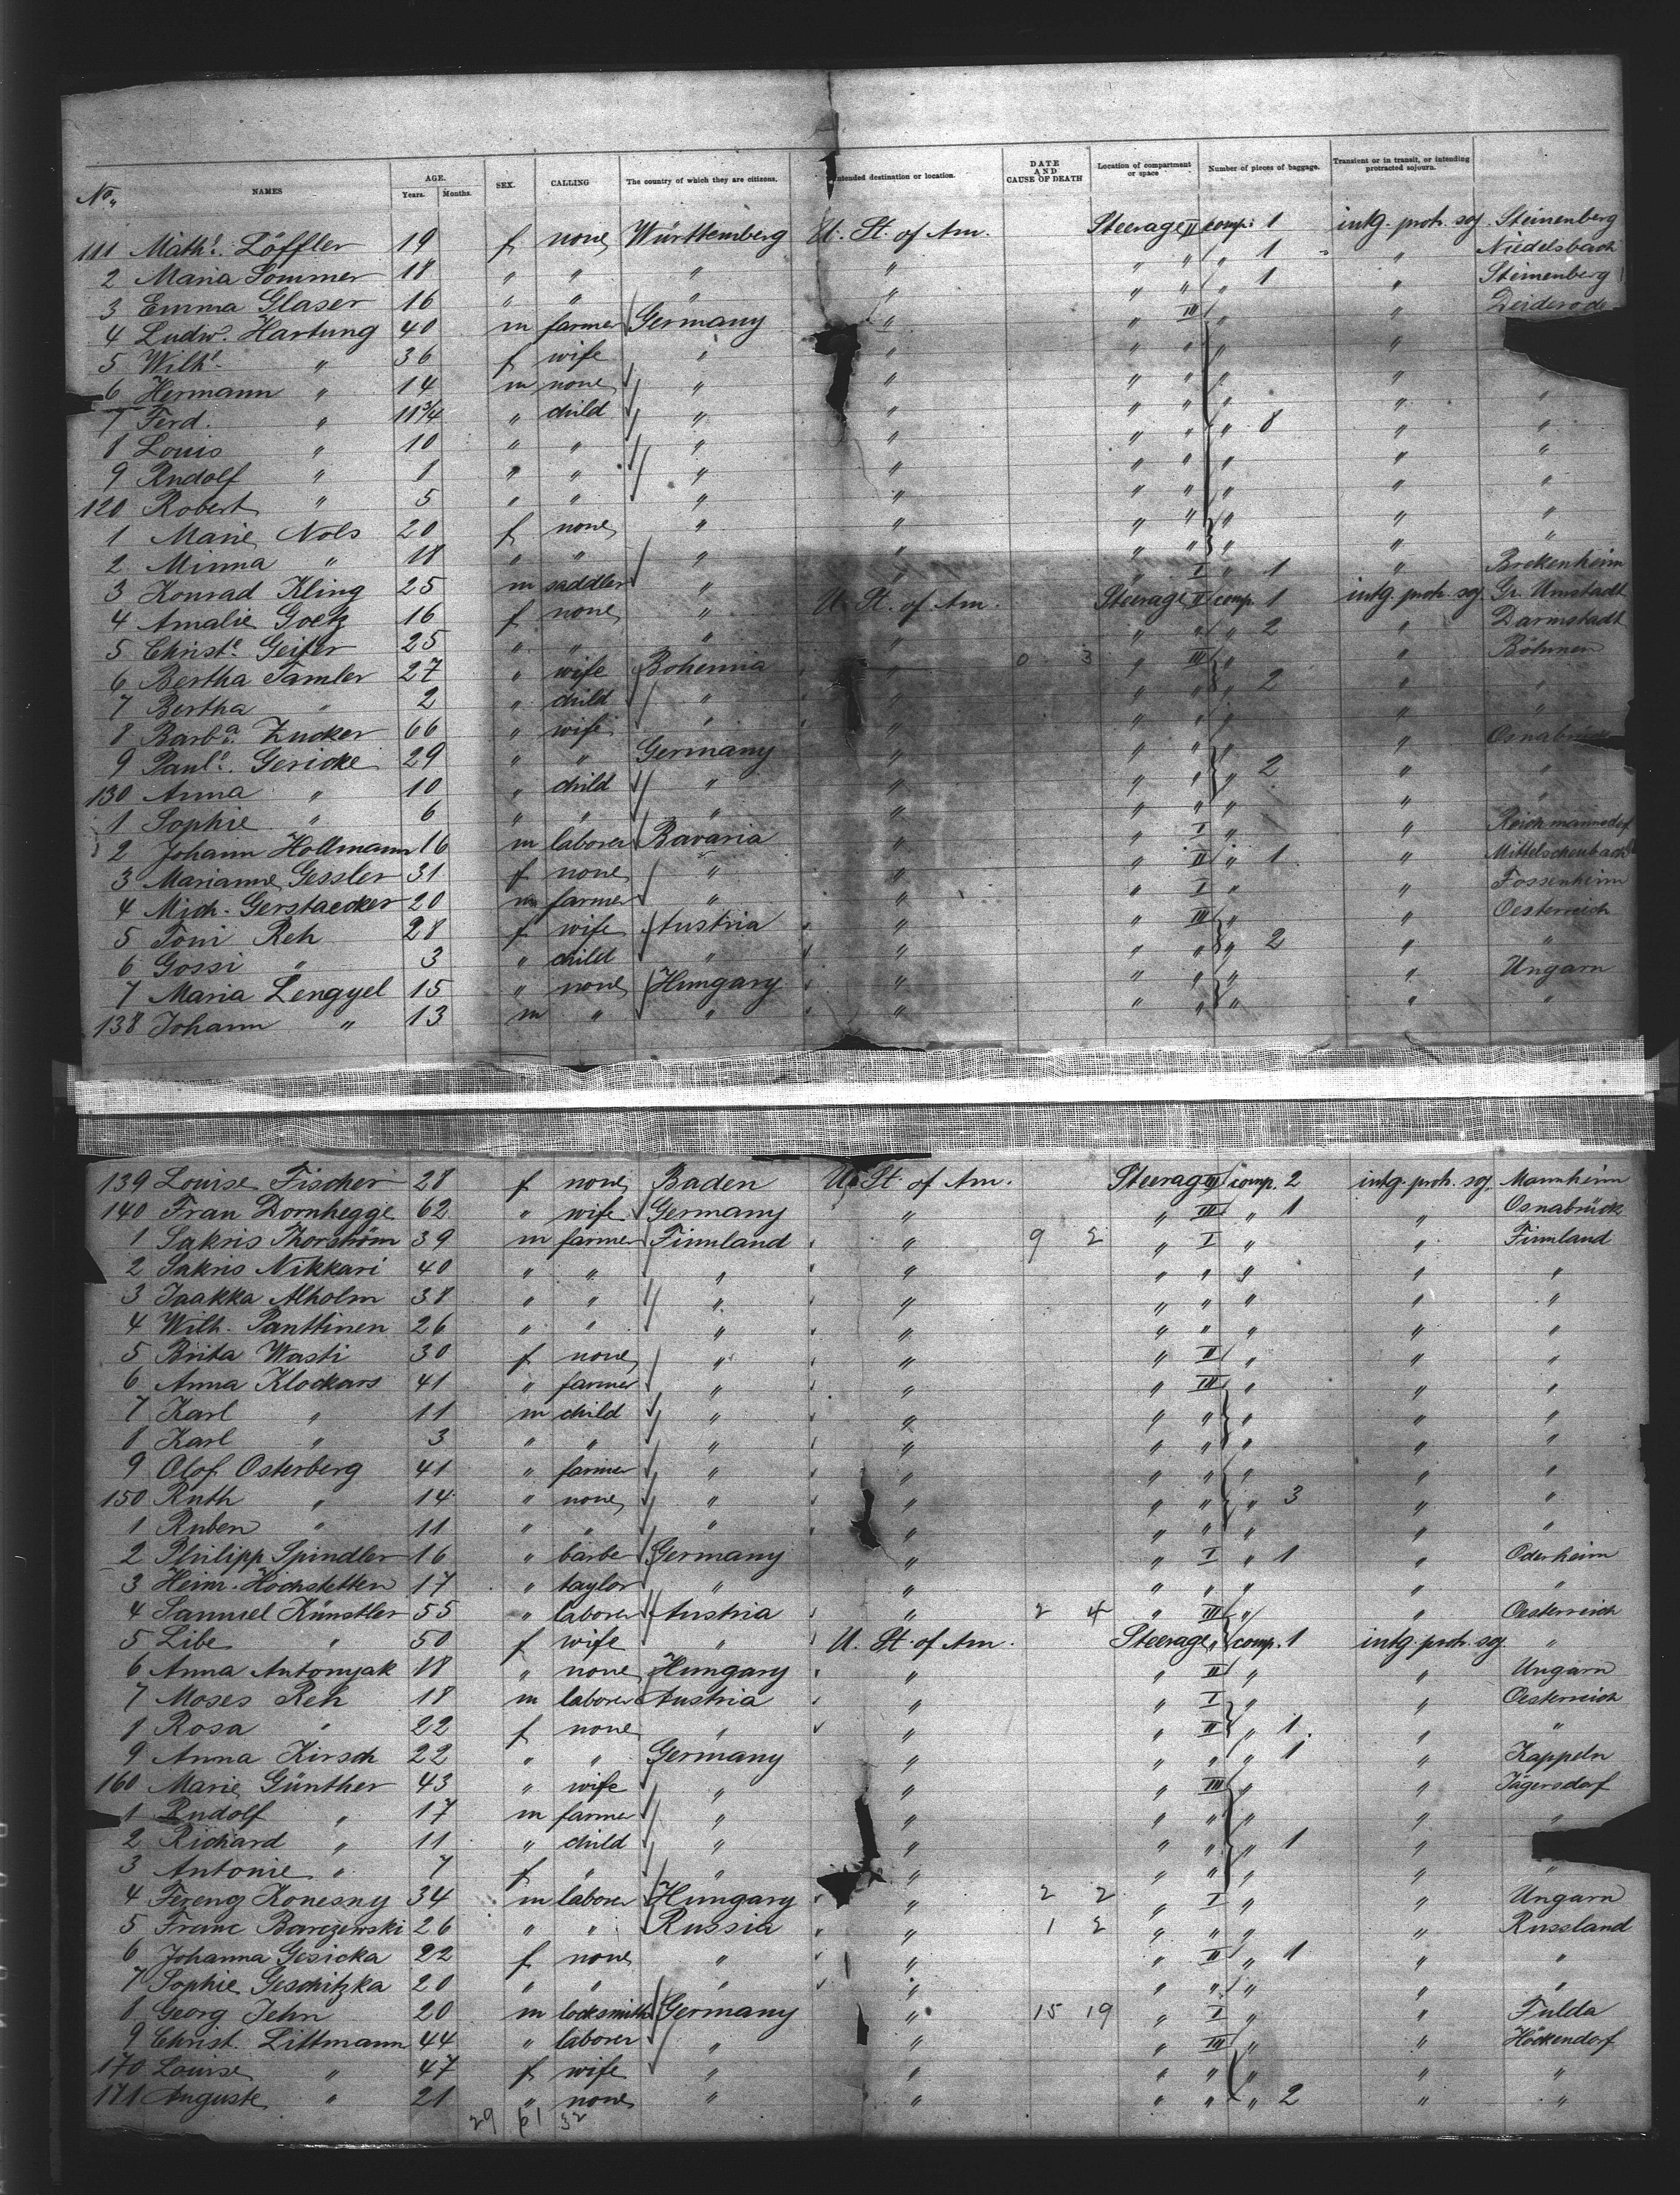 No. NAMES AGE. Years. Months. SEX. CALLING The country of which they are citizens. Intended destination or location. DATE AND CAUSE OF DEATH Location of compartment or space Number of pieces of baggage. Transient or in transit, or intending protracted sojourn.
111 Mathe. Löffler 19 f none Württemberg U. St. of Am. Steerage II comp. 1 intg. protr. soj. Steinenberg
2 Maria Sommer 18 " " " " " " " 1 " Niedelsbach
3 Emma Glaser 16 " " " " " " " 1 " Steinenberg
4 Ludw. Hartung 40 m farmer Germany " " III " " Deiderode
5 Wilhe. " 36 f wife " " " " " "
6 Hermann " 14 m none " " " " " " "
7 Ferd. " 11 3/4 " child " " " " " 8 " "
8 Louis " 10 " " " " " " " " "
9 Rudolf " 1 " " " " " " " " "
120 Robert " 5 " " " " " " " " "
1 Marie Nols 20 f none " " " " " " "
2 Minna " 18 " " " " " " " " "
3 Konrad Kling 25 m saddler " " " I " 1 " Brokenheim
4 Amalie Goetz 16 f none " U. St. of Am. Steerage II comp. 1 intg. protr. soj. Gr. Umstadt
5 Christe. Geiter 25 " " " " " " " 2 " Darmstadt
6 Bertha Tamler 27 " wife Bohemia " 0 3 " III " " Böhmen
7 Bertha " 2 " child " " " " " 2 " "
8 Barba. Zucker 66 " wife " " " " " " "
9 Paule. Gericke 29 " " Germany " " " " " Osnabrück
130 Anna " 10 " child " " " " " 2 " "
1 Sophie " 6 " " " " " " " " "
2 Johann Hollmann 16 m laborer Bavaria " " I " " Reichmannsdf
3 Marianne Gessler 31 f none " " " II " 1 " Mittelschenbach
4 Mich. Gerstaecker 20 m farmer " " " I " " Fossenheim
5 Toni Reh 28 f wife Austria " " III " " Oesterreich
6 Gossi " 3 " child " " " " " 2 " "
7 Maria Lengyel 15 " none Hungary " " " " " Ungarn
138 Johann " 13 m " " " " " " " "
139 Louise Fischer 28 f none Baden U. St. of Am. Steerage II comp. 2 intg. protr. soj. Mannheim
140 Fran Dornhegge 62 " wife Germany " " III " 1 " Osnabrück
1 Sakris Thorström 39 m farmer Finnland " 9 2 " I " " Finnland
2 Sakris Nikkari 40 " " " " " " " " "
3 Jaakka Alholm 38 " " " " " " " " "
4 Wilh. Panttinen 26 " " " " " " " " "
5 Brita Wasti 30 f none " " " II " " "
6 Anna Klockars 41 " farmer " " " III " " "
7 Karl " 11 m child " " " " " " "
8 Karl " 3 " " " " " " " " "
9 Olof Osterberg 41 " farmer " " " " " " "
150 Ruth " 14 " none " " " " " 3 " "
1 Ruben " 11 " " " " " " " " "
2 Philipp Spindler 16 " barber Germany " " I " 1 " Oderheim
3 Heinr. Höchstetten 17 " taylor " " " " " " "
4 Samuel Künstler 55 " laborer Austria " 2 4 " III " " Oesterreich
5 Libe " 50 f wife " U. St. of Am. Steerage " comp. 1 intg. protr. soj. "
6 Anna Antonyak 18 " none Hungary " " II " " Ungarn
7 Moses Reh 18 m laborer Austria " " I " " Oesterreich
8 Rosa " 22 f none " " " II " 1 " "
9 Anna Kirsch 22 " " Germany " " " " 1 " Kappeln
160 Marie Günther 43 " wife " " " III " " Jägersdorf
1 Rudolf " 17 m farmer " " " " " " "
2 Richard " 11 " child " " " " " 1 "
3 Antonie " 7 f " " " " " " " "
4 Ferenz Konesny 34 m laborer Hungary " 2 2 " I " " Ungarn
5 Franc Barczewski 26 " " Russia " 1 2 " " " " Russland
6 Johanna Gesicka 22 f none " " " II " 1 " "
7 Sophie Geschitzka 20 " " " " " " " " "
8 Georg Jehn 20 m locksmith Germany " 15 19 " I " " Fulda
9 Christ. Littmann 44 " laborer " " " III " " Höckendorf
170 Louise " 47 f wife " " " " " " "
171 Auguste " 21 " none " " " " " 2 " "
29 61 32